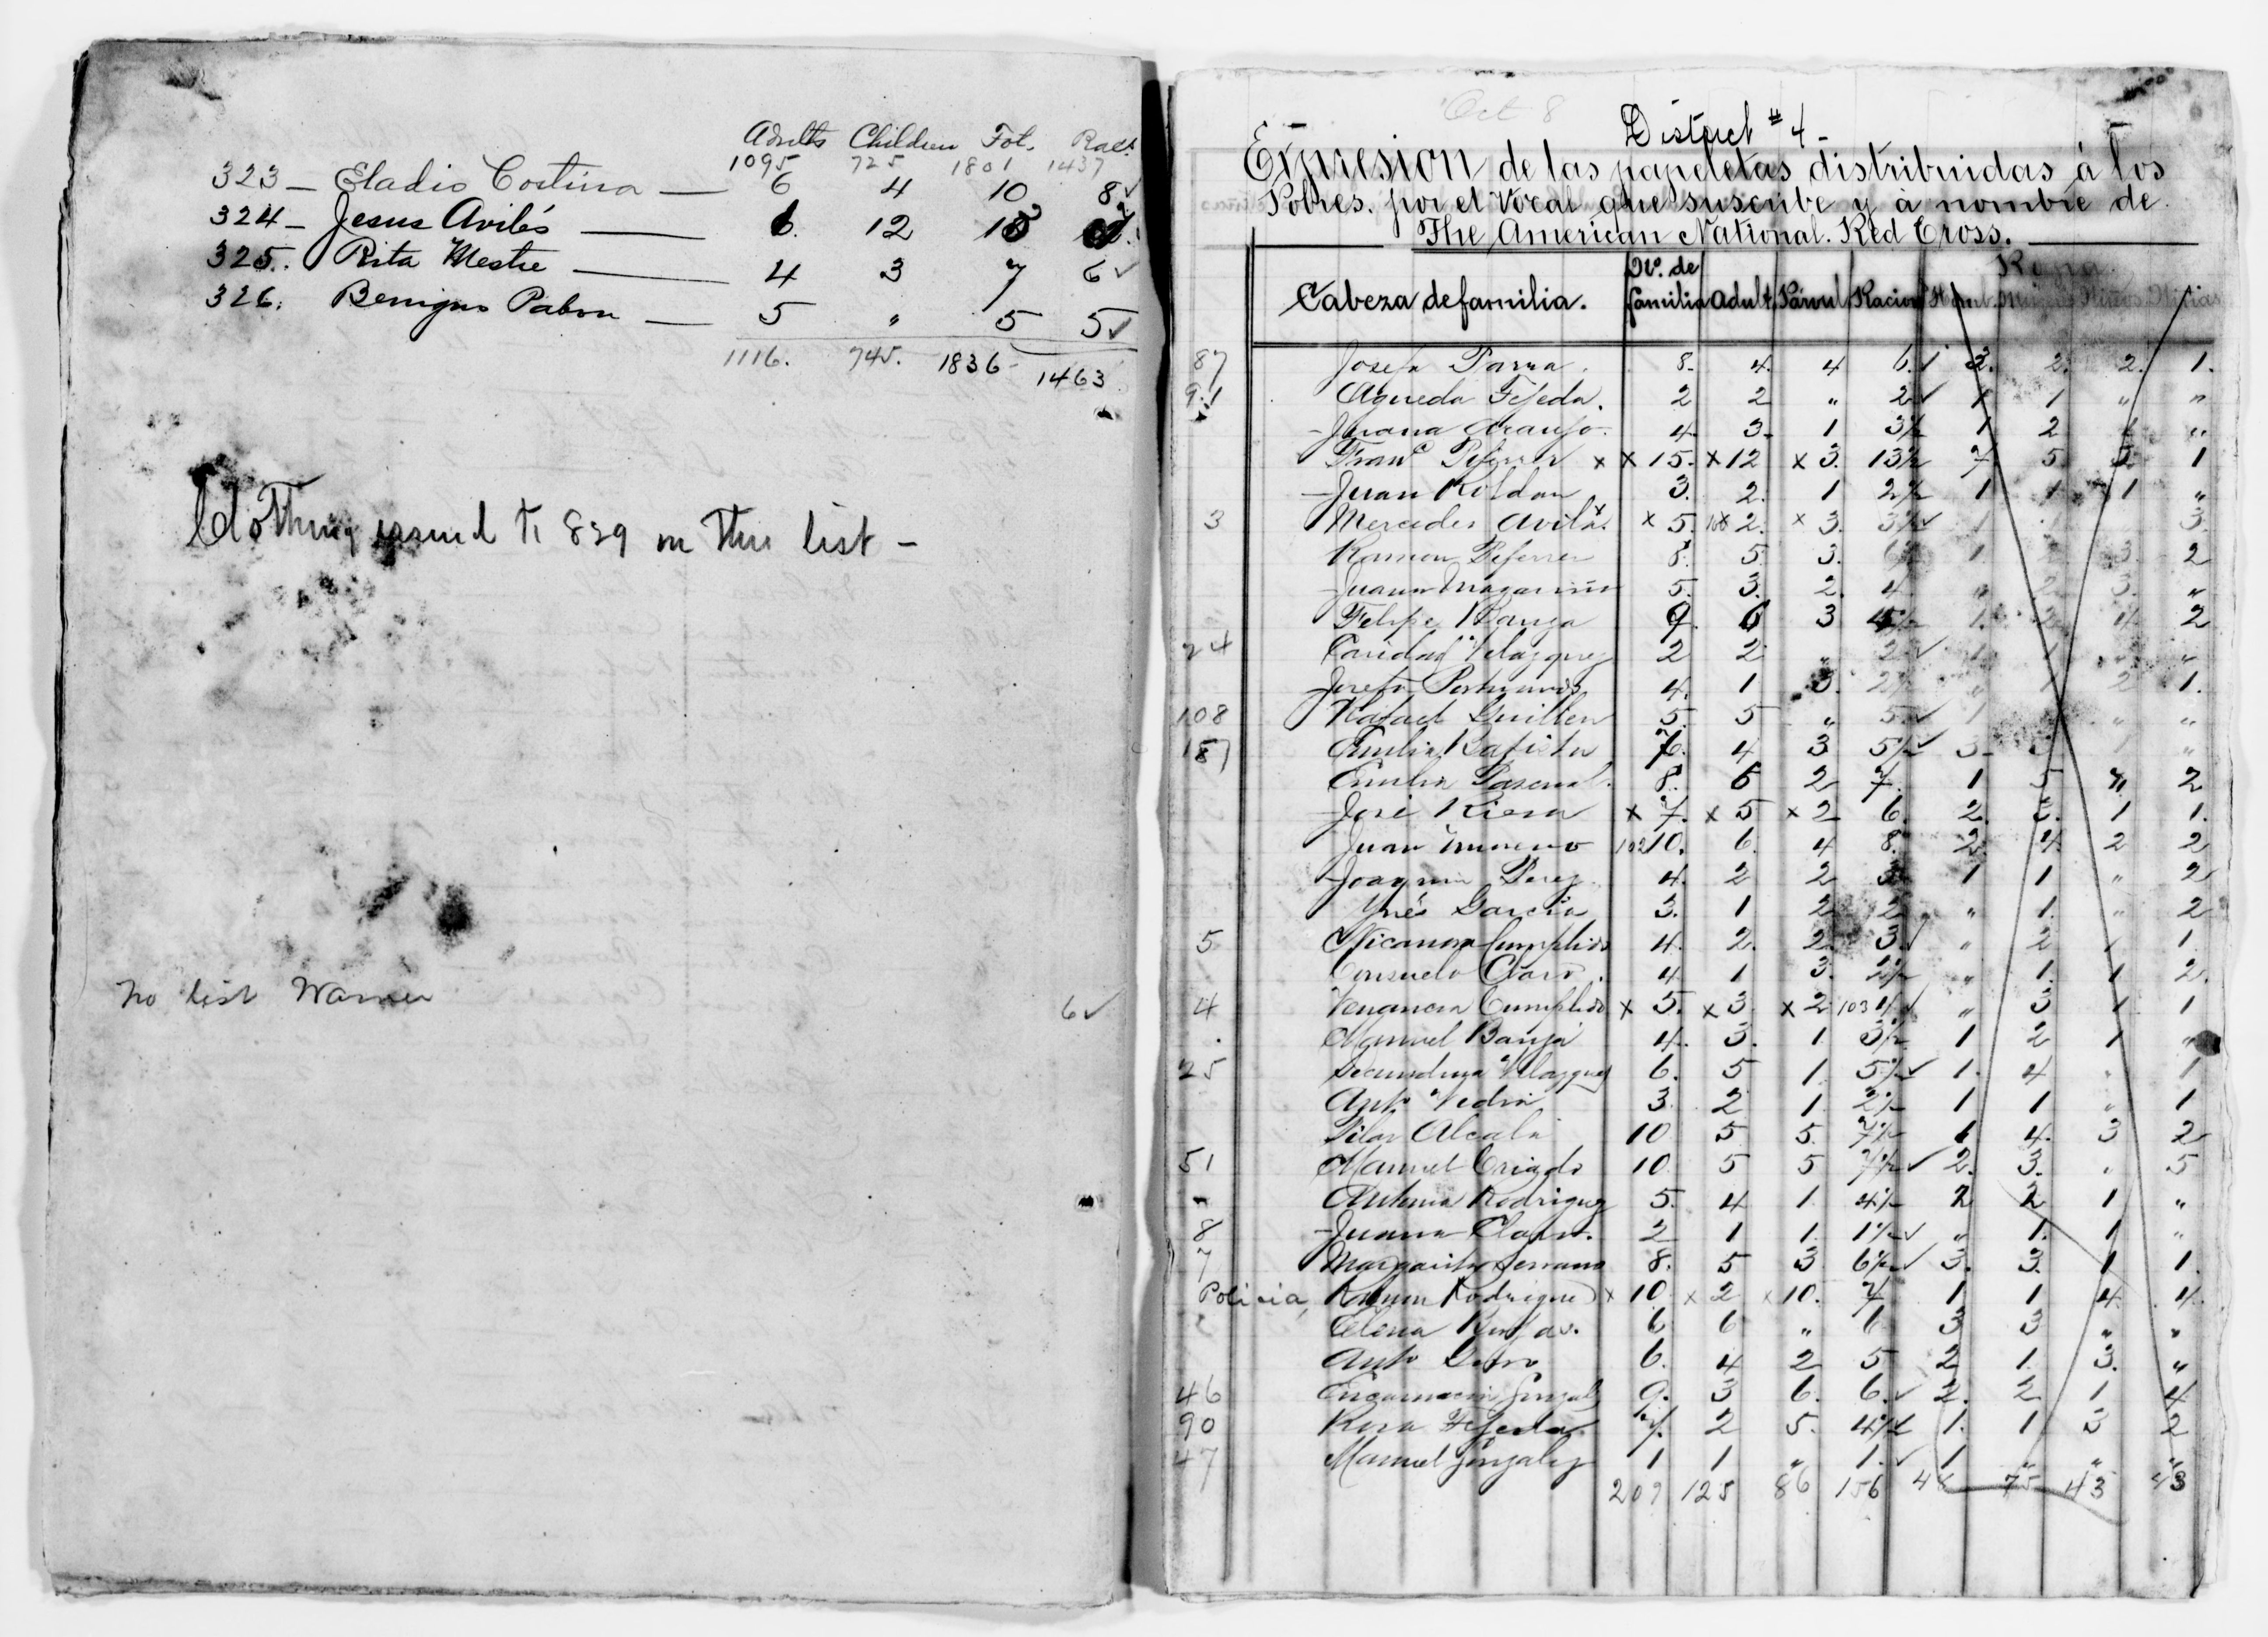 Adults Children Tot. Rac.
1095 725 1801 1437
323 — Eladio Costina — 6 4 10 8 ✓
324 — Jesus Avilés — 6. 12 18
325. Rita Mestre — 4 3 7 6 ✓
326. Benigno Pabon — 5 " 5 5 ✓
1116. 745. 1836 1463
Clothing issued to 829 on this list —
No list Warner 6 ✓
Oct 8
District # 4 —
Expresion de las papeletas distribuidas á los
Pobres. por el Vocal que suscribe y á nombre de
The American National. Red Cross.
Cabeza de familia. Nº. de familia Adult. Párvul. Racion Ropa Niños Niñas
87 Josefa Parra. 8. 4. 4 6. ✓ 3. 2. 2. 1.
91 Agueda Tejeda. 2 2 " 2 ✓ 1 1 " "
Juana Araujo. 4. 3. 1 3½ 1 2 1 "
Franco Deferrer x x 15. x 12 x 3. 13½ 7 5 2 1
Juan Roldan 3. 2. 1 2½ 1 1 1 "
3 Mercedes Avila x x 5. x 2. x 3. 3½ ✓ 1 3
Ramon Deferrer 8. 5. 3. 1. 3. 2
Juana 5. 3. 2. 4 " 2 3. "
Felipe Banga 9. 6 3 1. 2 4 2
24 Caridad Velazquez 2 2 " 2 ✓ 1 1 " "
Josefa 4. 1 3. 2½ " 1 2 1.
108 Rafael Guillen 5. 5 " 5 ✓ 1 " "
Emilia Batista 7. 4 3 5½ ✓ 3 1 "
Emilia Pascual. 8. 6 2 7. 1 5 " 2
José Riera x 7. x 5 x 2 6. 2. 3. 1 1.
Juan Moreno 102 10. 6. 4 8. 2. 4 2 2
Joaquin Perez 4. 2 2 3 1 1 " 2
Ynés Garcia 3. 1 2 2 " 1. " 2
5 Nicanora Cumplido 4. 2. 2. 3. ✓ " 2 1 1.
Consuelo Claro. 4 1 3. 2½ " 1. 1 2.
4 Venancia Cumplido x 5. x 3 x 2 103 4 ✓ " 3 1 1
Manuel Banga 4. 3. 1. 3½ 1 2 1 "
25 Secundina Velazquez 6. 5 1. 5½ ✓ 1. 4 " 1
Anto Vedia 3. 2 1. 2½ 1 1 " 1
Pilar Alcala 10 5 5. 7½ 1 4. 3 2
51 Manuel Criado 10. 5 5 7½ ✓ 2. 3. " 5
Antonia Rodriguez 5. 4 1. 4½ 2 2 1 "
8 Juana Claro. 2 1 1. 1½ ✓ " 1. 1 "
7 Margarita Serrano 8. 5 3 6½ ✓ 3. 3. 1 1.
Policia, Ramon Rodriguez x 10 x 2 x 10. 7 1 1 4. 4.
6 6 " 6 3 3 " "
Anto 6. 4 2 5 2 1. 3. "
46 Encarnacion Gonzalez 9. 3 6. 6. ✓ 2. 2 1 4
90 Rosa Tejeda 7. 2 5. 4½ ✓ 1. 1 3 2
47 Manuel Gonzalez 1 1 " 1. ✓ 1 " " "
209 125 86 156 75 43 43